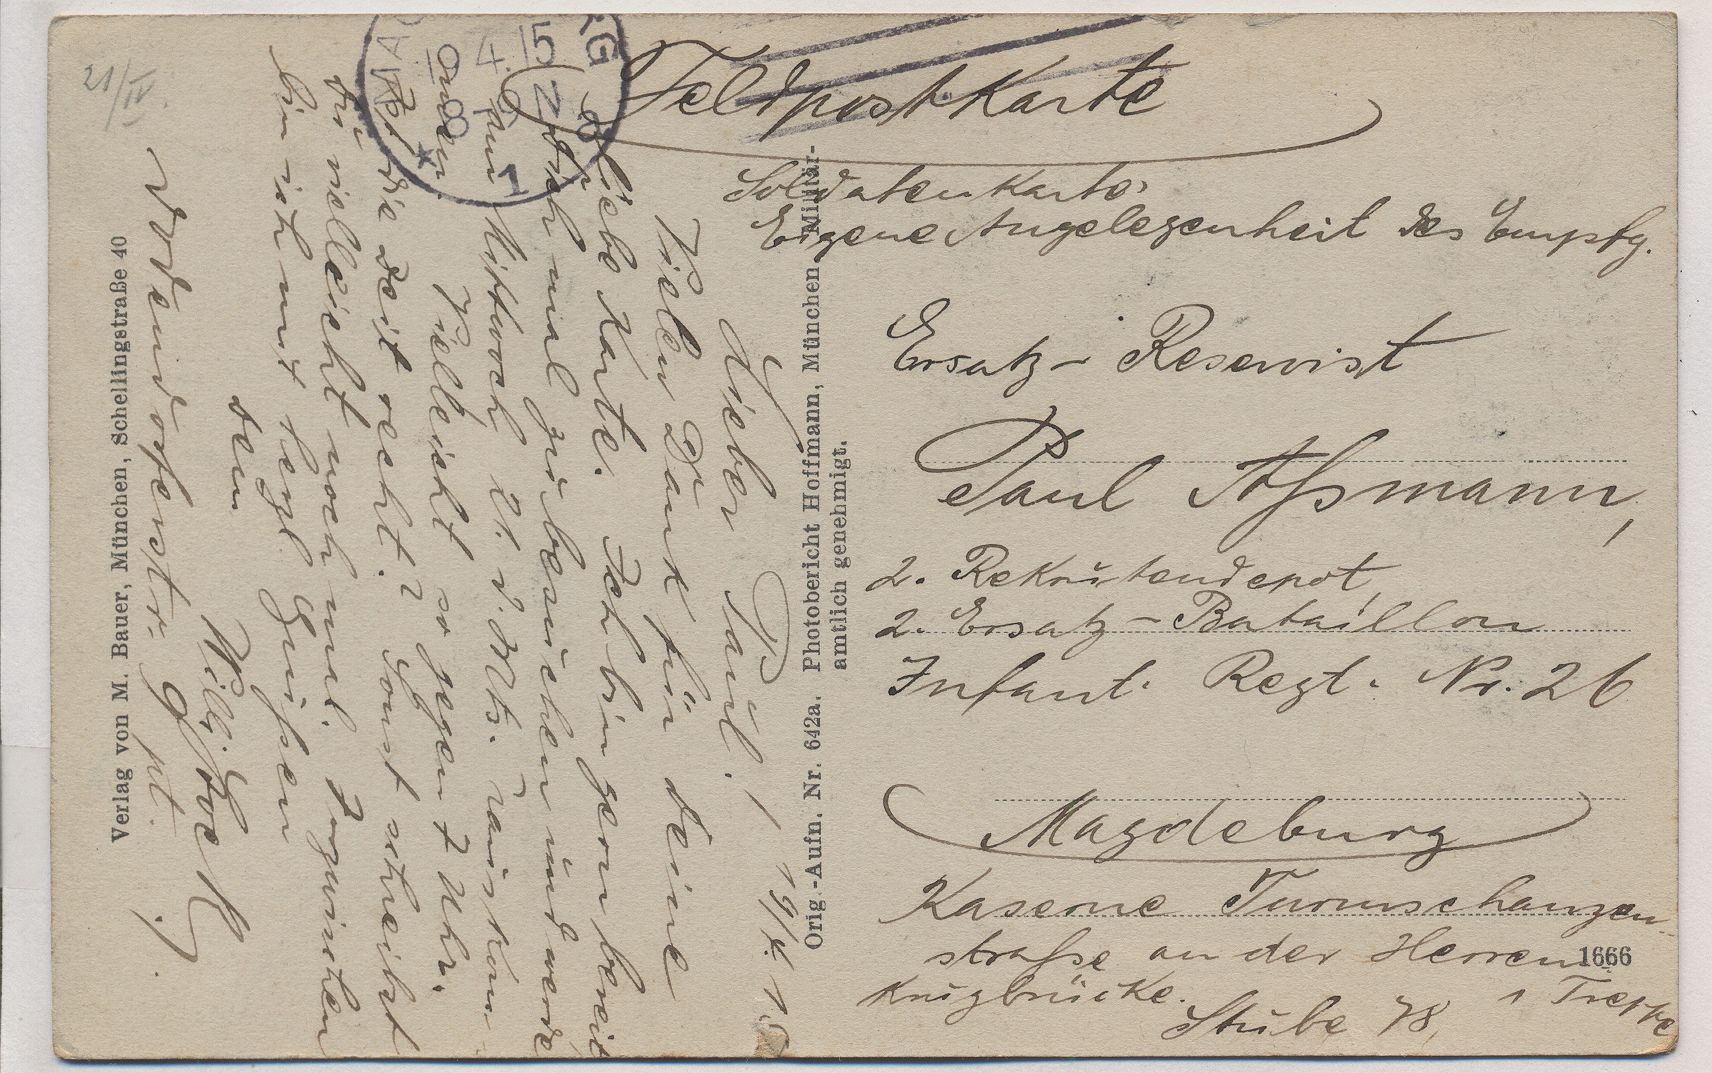 21/IV.
MAG RG
19 4.15
8-9 N
* 1
Feldpostkarte
Soldatenkarte.
Eigene Angelegenheit des Empfg.
Ersatz-Reservist
Paul Aßmann,
2. Rekrutendepot,
2. Ersatz-Bataillon
Infant. Regt. Nr. 26
Magdeburg
Kaserne Turmschanzen-
straße an der Herren
Krugbrücke. 1 Treppe
Stube 78,
1666
19/4. 15
Lieber Paul!
Vielen Dank für deine
liebe Karte. Ich bin gern bereit
dich mal zu besuchen und werde
dann Mittwoch 21. d. Mts. rauskom-
men. Vielleicht so gegen 7 Uhr.
Ist die Zeit recht? Sonst schreibst
du vielleicht noch mal. Inzwischen
bin ich mit herzl Grüßen
dein
Willi
Verlag von M. Bauer, München, Schellingstraße 40
Orig.-Aufn. Nr. 642a. Photobericht Hoffmann, München Militär-
amtlich genehmigt.